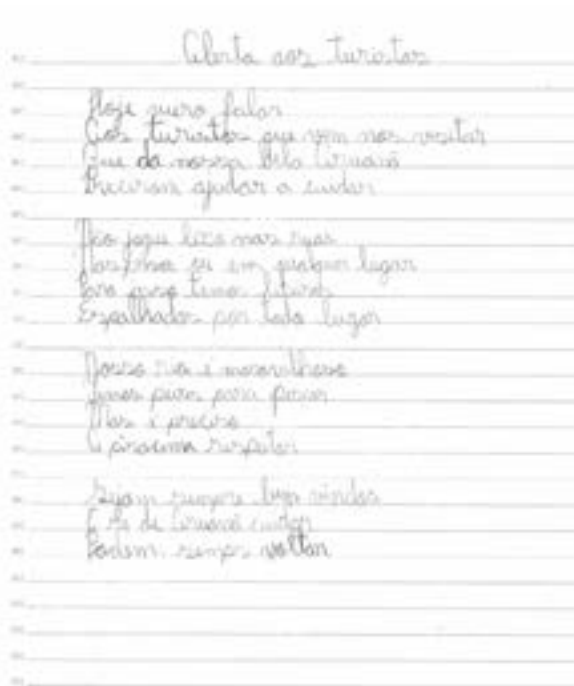 Alerta aos turistas
Hoje quero falar
Aos turistas que vem nos visitar
Que da nossa bela Aruanã
Precisam ajudar a cuidar
Não jogue lixo nas ruas
Nas ou em qualquer lugar
Para isso temos lixeiras
Espalhadas por todo lugar
Nosso rio é maravilhoso
Temos peixes para pescar
Mas é preciso
A piracema respeitar
Sejam sempre bem vindos
E se de Aruanã cuidar
Podem sempre voltar